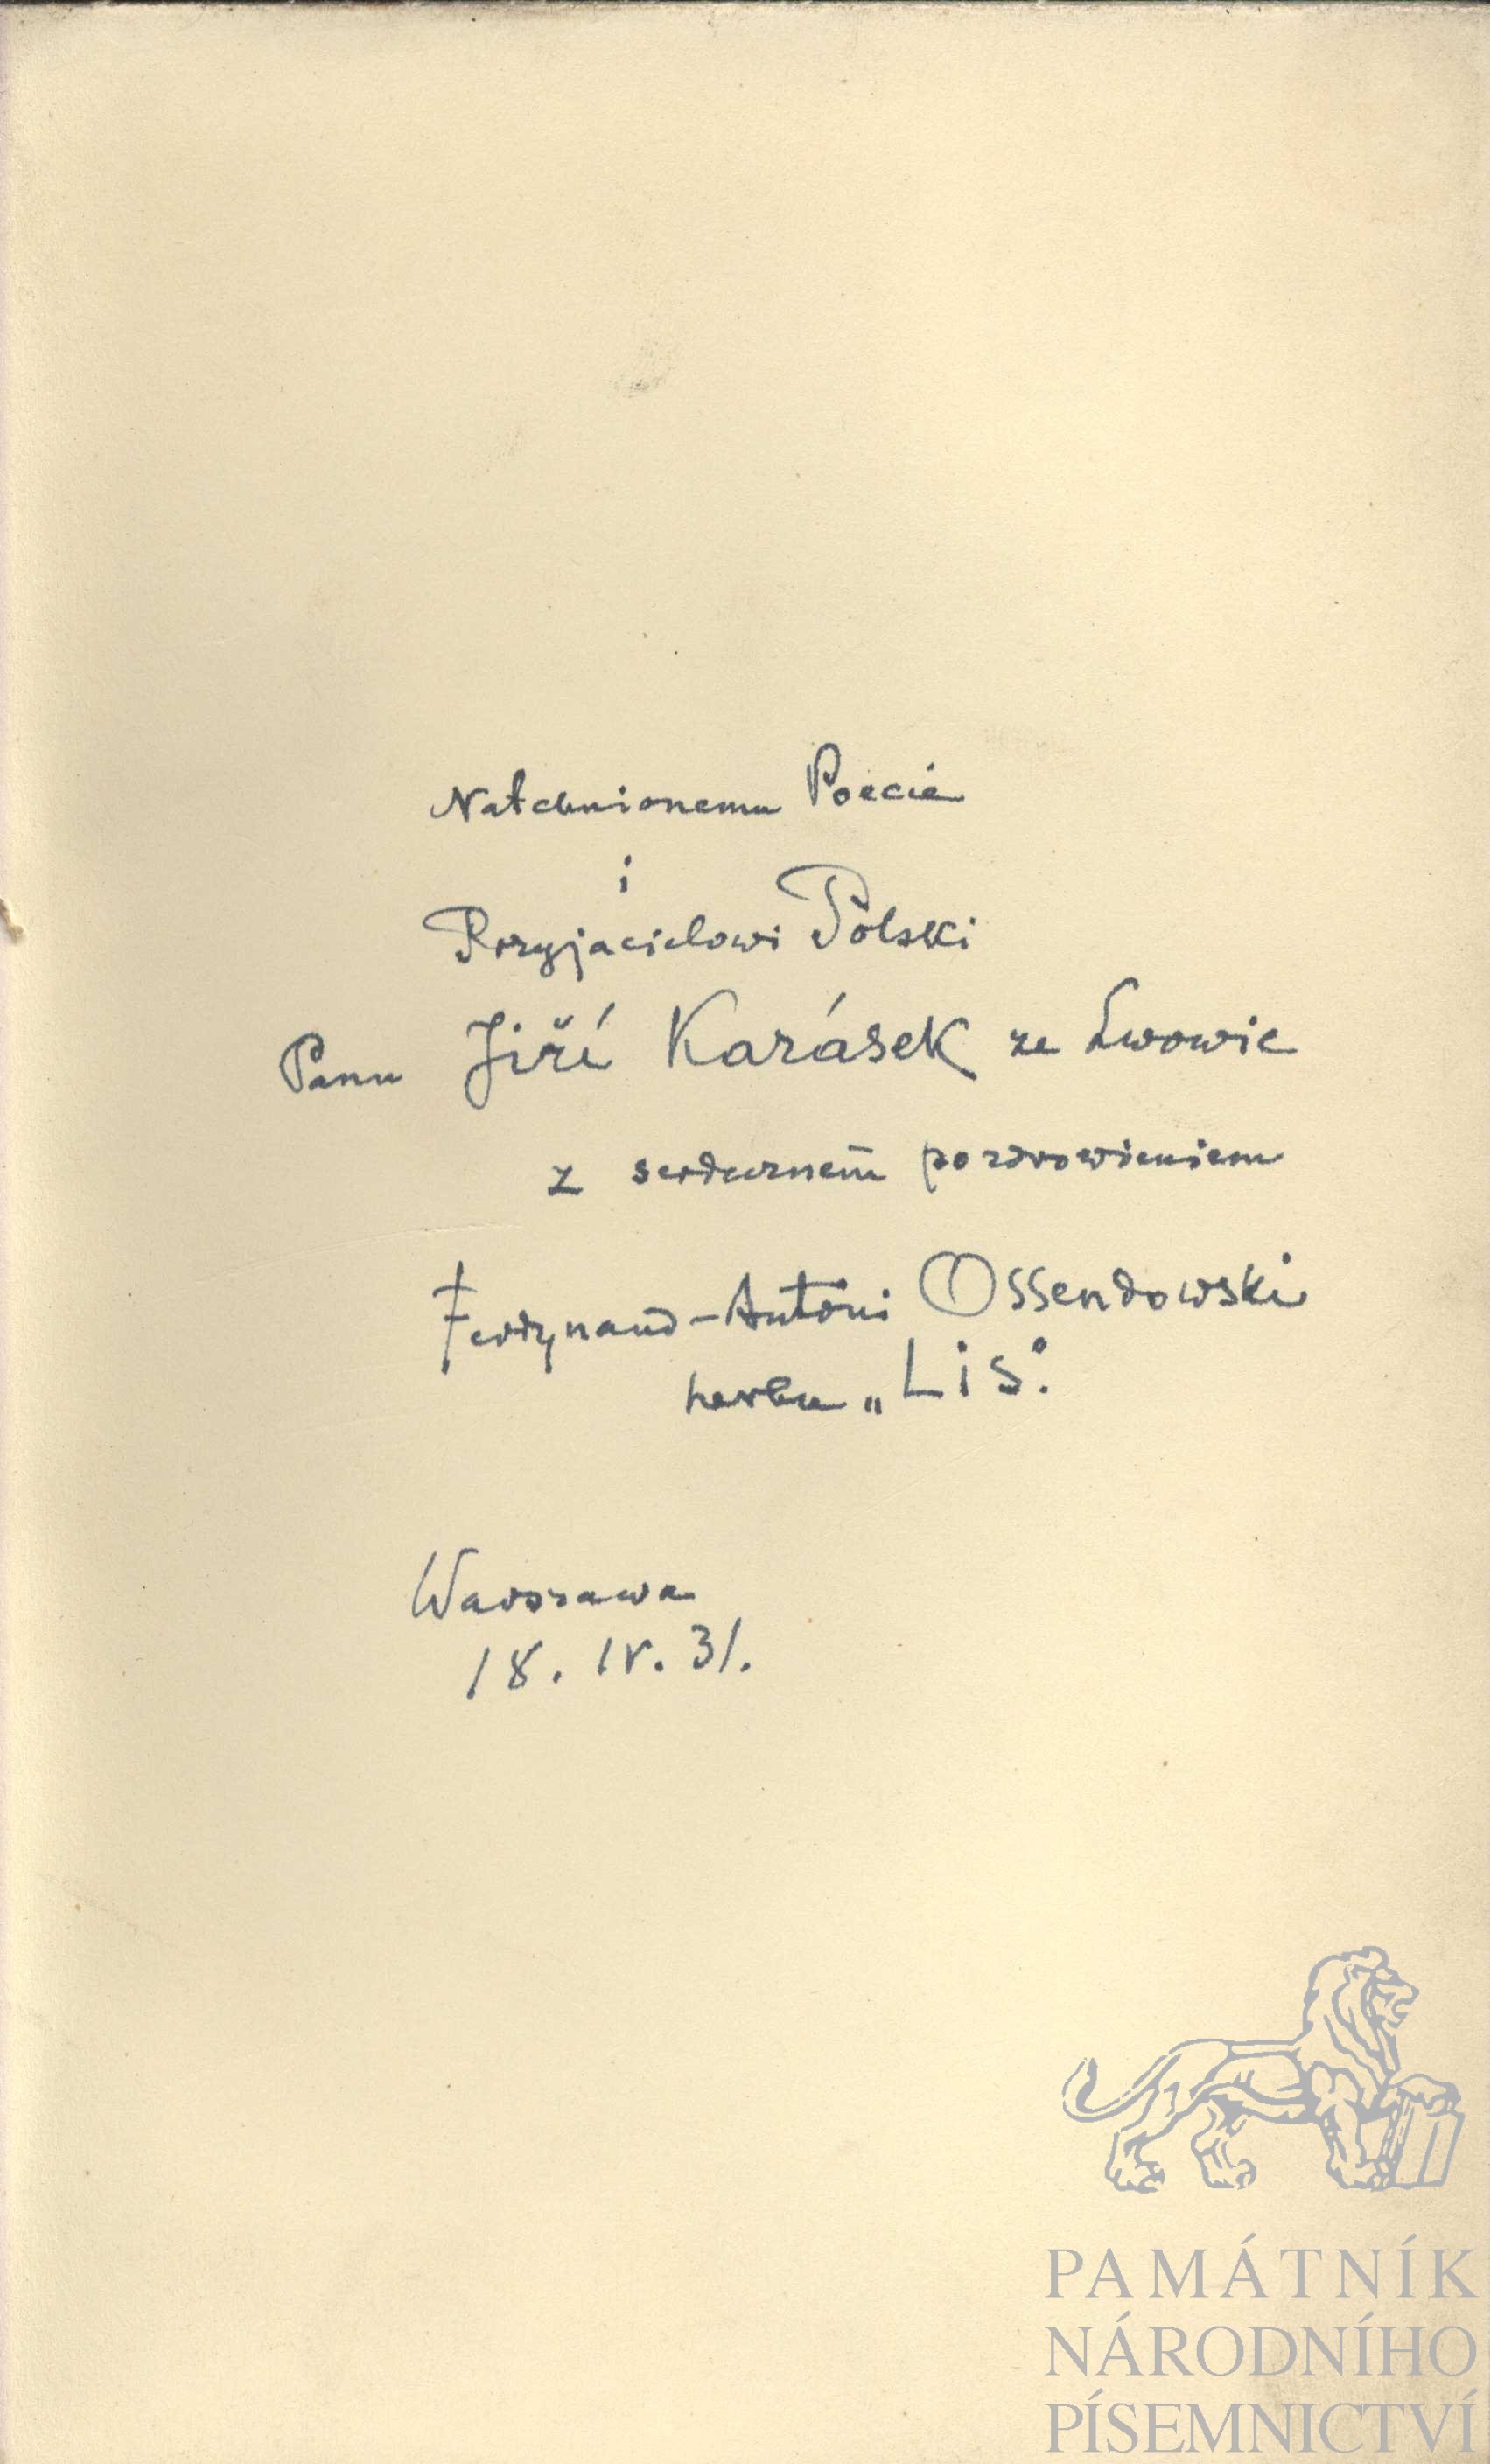 Natchnionemu Poecie
i
Przyjacielowi Polski
Panu Jiří Karásek ze Lwowic
z serdecznem pozdrowieniem
Ferdynand-Antoni Ossendowski
herbu „Lis".
Warszawa
18. IV. 31.
PAMÁTNÍK
NÁRODNÍHO
PÍSEMNICTVÍ